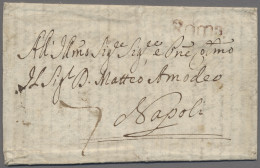 Roma
All' Illmo Sigre Sigre e Pne Ossmo
Il Sigr D. Matteo Amodeo
Napoli